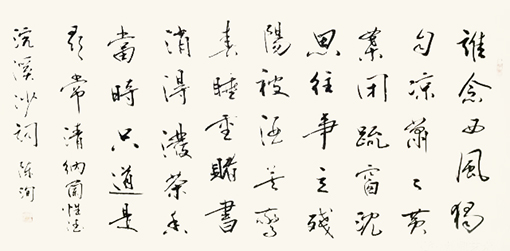 誰念西風獨
自涼蕭々黃
葉閉疏窗沈
思往事立殘
陽被酒莫驚
春睡重賭書
消得潑茶香
當時只道是
尋常清納蘭性德
浣溪沙詞